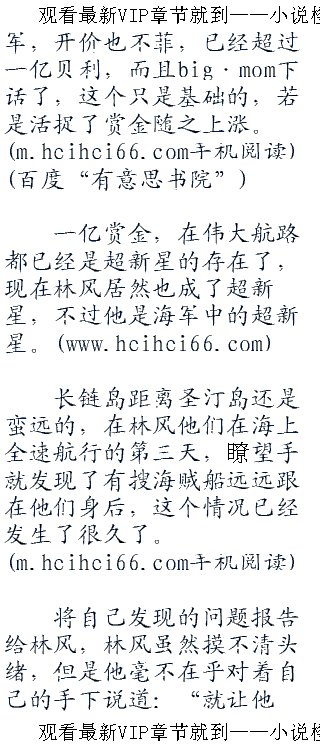 观看最新VIP章节就到——小说
军，开价也不菲，已经超过
一亿贝利，而且big·mom下
话了，这个只是基础的，若
是活捉了赏金随之上涨。
(m.hcihci66.com手机阅读)
(百度“有意思书院”)
一亿赏金，在伟大航路
都已经是超新星的存在了，
现在林风居然也成了超新
星，不过他是海军中的超新
星。(www.hcihci66.com)
长链岛距离圣汀岛还是
蛮远的，在林风他们在海上
全速航行的第三天，瞭望手
就发现了有搜海贼船远远跟
在他们身后，这个情况已经
发生了很久了。
(m.hcihci66.com手机阅读)
将自己发现的问题报告
给林风，林风虽然摸不清头
绪，但是他毫不在乎对着自
己的手下说道：“就让他
观看最新VIP章节就到——小说